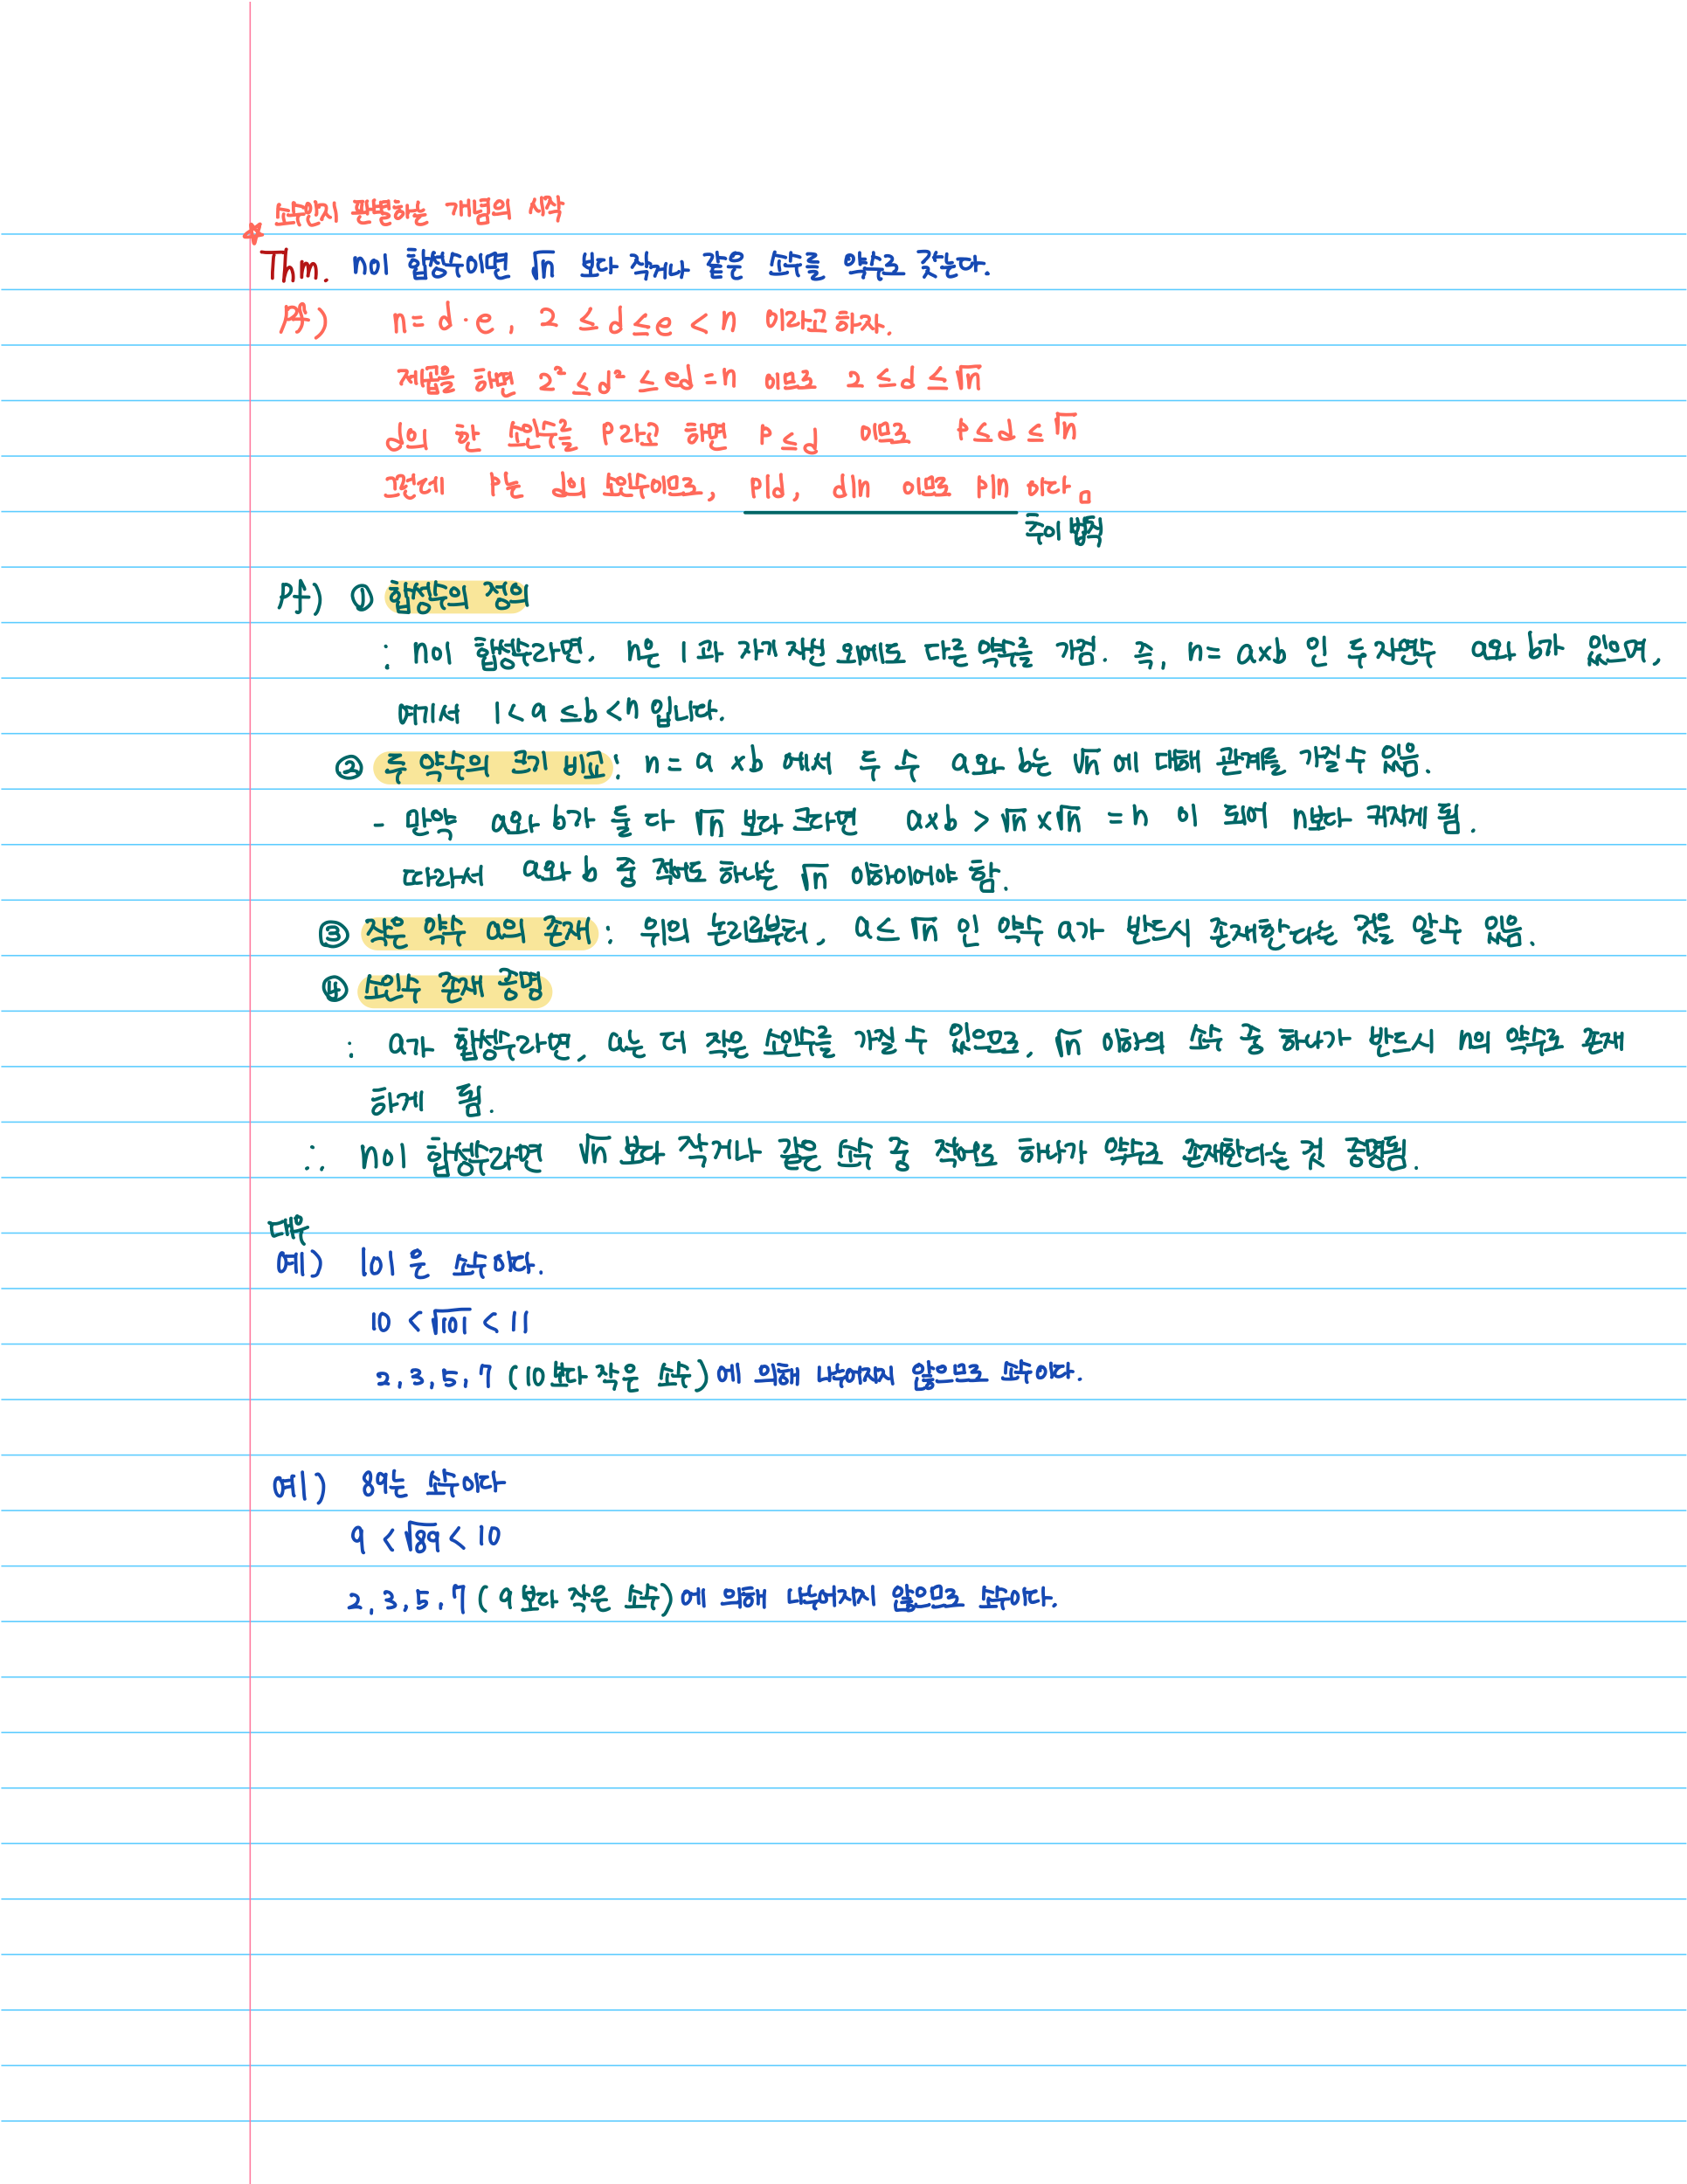 소수인지 판별하는 개념의 시작
☆
Thm. n이 합성수이면 √n 보다 작거나 같은 소수를 약수로 갖는다.
Pf) n = d·e, 2 ≤ d ≤ e < n 이라고 하자.
제곱을 하면 2² ≤ d² ≤ ed = n 이므로 2 ≤ d ≤ √n
d의 한 소인수를 P라고 하면 P ≤ d 이므로 P ≤ d ≤ √n
그런데 P는 d의 소인수이므로, P|d, d|n 이므로 P|n 이다 □
추이 법칙
Pf) ① 합성수의 정의
: n이 합성수라면, n은 1과 자기 자신 외에도 다른 약수를 가짐. 즉, n = a×b 인 두 자연수 a와 b가 있으며,
여기서 1 < a ≤ b < n 입니다.
② 두 약수의 크기 비교 : n = a × b 에서 두 수 a와 b는 √n 에 대해 관계를 가질 수 있음.
- 만약 a와 b가 둘 다 √n 보다 크다면 a×b > √n × √n = n 이 되어 n보다 커지게 됨.
따라서 a와 b 중 적어도 하나는 √n 이하이어야 함.
③ 작은 약수 a의 존재 : 위의 논리로부터, a ≤ √n 인 약수 a가 반드시 존재한다는 것을 알 수 있음.
④ 소인수 존재 증명
: a가 합성수라면, a는 더 작은 소인수를 가질 수 있으므로, √n 이하의 소수 중 하나가 반드시 n의 약수로 존재
하게 됨.
∴ n이 합성수라면 √n 보다 작거나 같은 소수 중 적어도 하나가 약수로 존재한다는 것 증명됨.
대우
예) 101은 소수이다.
10 < √101 < 11
2, 3, 5, 7 (10보다 작은 소수)에 의해 나누어지지 않으므로 소수이다.
예) 89는 소수이다
9 < √89 < 10
2, 3, 5, 7 (9보다 작은 소수)에 의해 나누어지지 않으므로 소수이다.